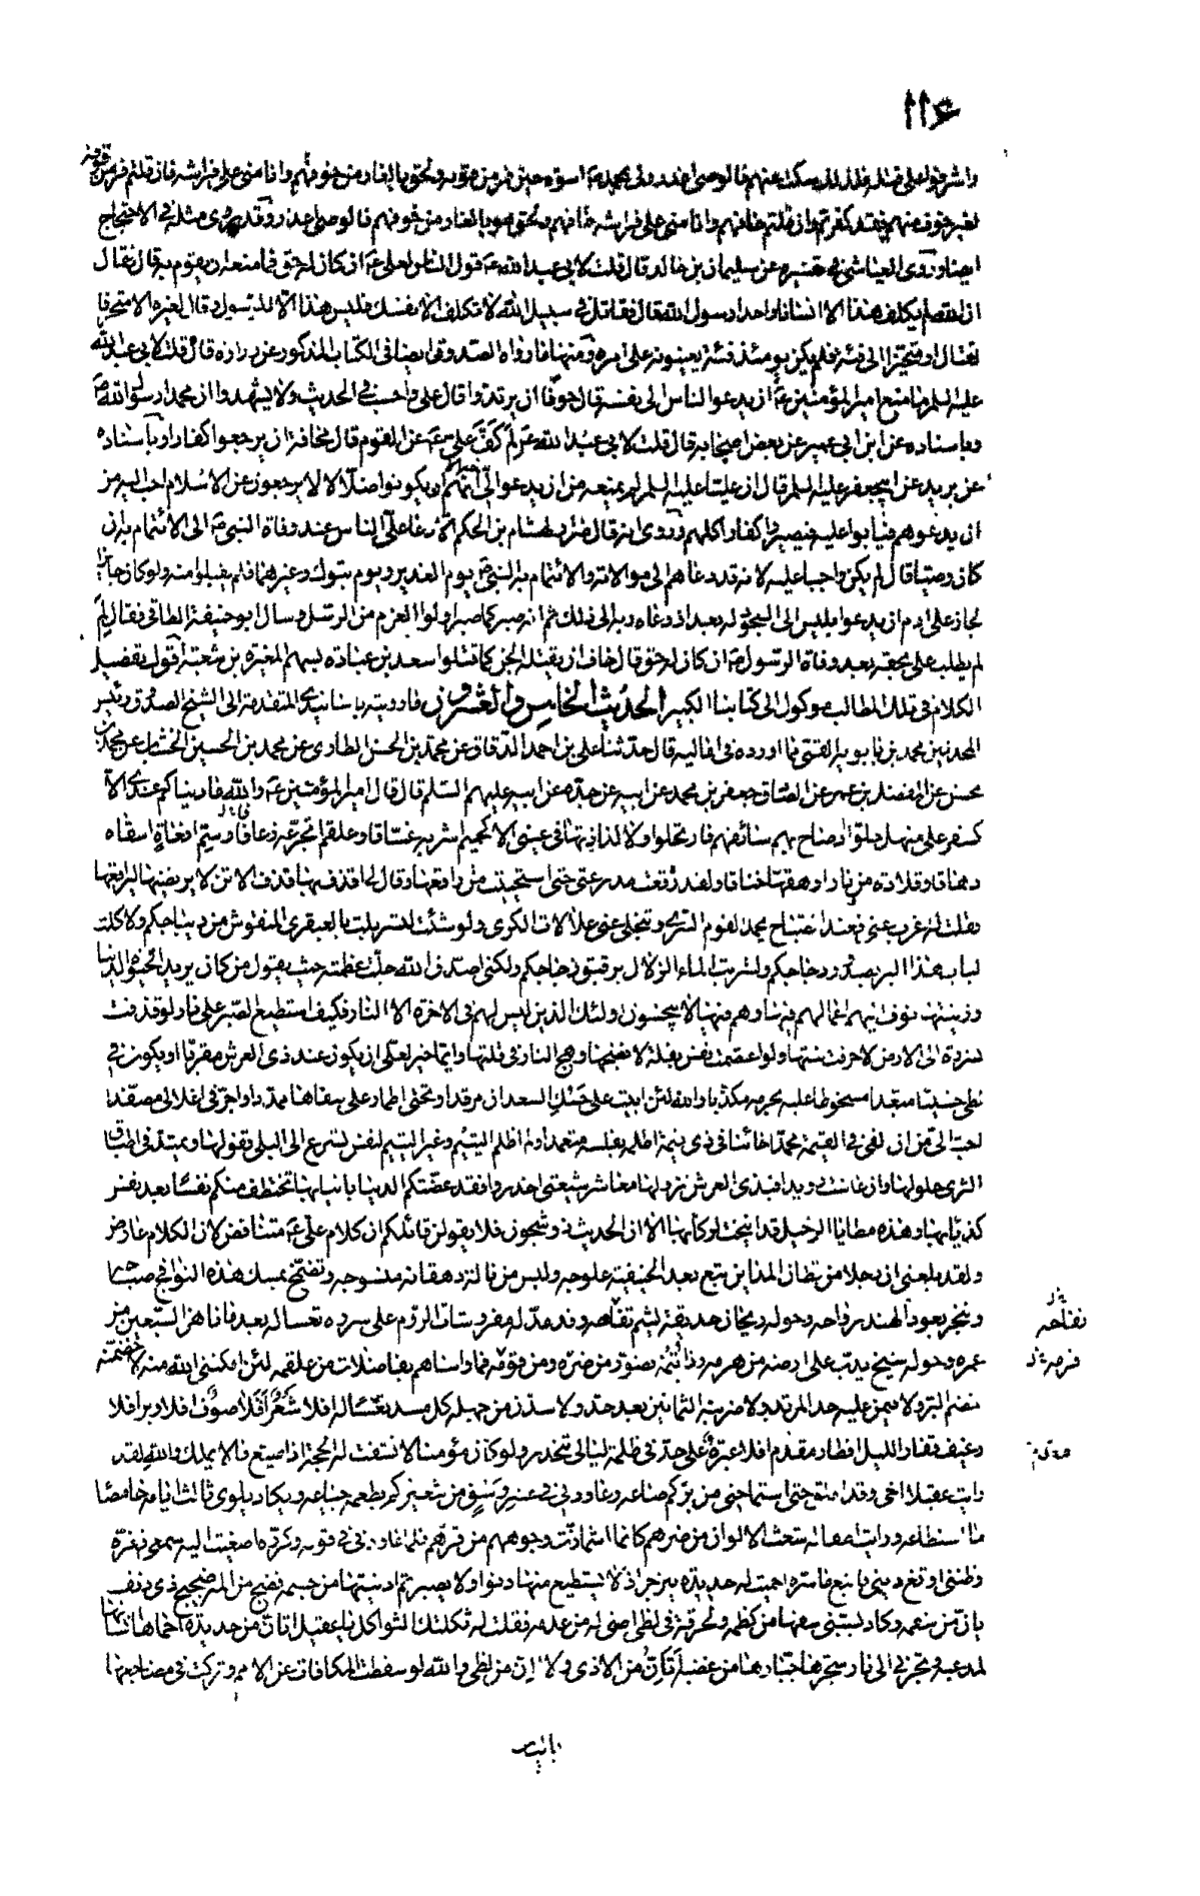 ١١٤
واشرفوا على قتله فلذلك سكت عنهم فالوصي اعذر ولي بمحمد اسوة حين فر من قومه ولحق بالغار من خوفهم وانامني على فراشه فان قلتم فر من قومه
لغير خوف منهم فقد كفرتم وان قلتم خافهم وانامني على فراشه ولحق هو بالغار من خوفهم فالوصي اعذر وقد روى مثله في الاحتجاج
ايضا وروى العياشي في تفسيره عن سليمان بن خالد قال قلت لابي عبد الله ع قول الناس لعلي ع ان كان له حق فما منعه ان يقوم به قال فقال
ان الله لم يكلف هذا الا انسانا واحدا رسول الله قال فقاتل في سبيل الله لا تكلف الا نفسك فليس هذا الا للرسول وقال لغيره الا متحرفا
لقتال او متحيزا الى فئة فلم يكن يومئذ فئة يعينونه على امره ومنها ما رواه الصدوق ايضا في الكتاب المذكور عن زرارة قال قلت لابي عبد الله
عليه السلم ما منع امير المؤمنين ع ان يدعو الناس الى نفسه قال خوفا ان يرتدوا قال علي واحسب في الحديث ولا يشهدوا ان محمدا رسول الله ص
وباسناده عن ابن ابي عمير عن بعض اصحابه قال قلت لابي عبد الله ع لم كف علي ع عن القوم قال مخافة ان يرجعوا كفارا وباسناده
عن بريد عن ابي جعفر عليه السلم قال ان عليا عليه السلم لم يمنعه من ان يدعو الى نفسه الا انهم ان يكونوا ضلالا لا يرجعون عن الاسلام احب اليه من
ان يدعوهم فيأبوا عليه فيصيروا كفارا كلهم وروى انه قال ضرار لهشام بن الحكم الا دعا علي الناس عند وفاة النبي ص الى الائتمام به ان
كان وصيا قال لم يكن واجبا عليه لانه قد دعاهم الى موالاته والائتمام به النبي ص يوم الغدير ويوم تبوك وغيرهما فلم يقبلوا منه ولو كان جائزا
لجاز على ادم ان يدعو ابليس الى السجود له بعد اذ دعاه ربه الى ذلك ثم انه صبر كما صبر اولوا العزم من الرسل وسال ابو حنيفة الطاقي فقال لم
لم يطلب علي بحقه بعد وفاة الرسول ص ان كان له حق قال خاف ان يقتله الجن كما قتلوا سعد بن عبادة بسهم المغيرة بن شعبة اقول تفصيل
الكلام في تلك المطالب موكول الى كتابنا الكبير الحديث الخامس والعشرون ما رويته باسانيدي المتقدمة الى الشيخ الصدوق رئيس
المحدثين محمد بن بابويه القمي مما اورده في اماليه قال حدثنا علي بن احمد الدقاق عن محمد بن الحسن الطاري عن محمد بن الحسين الخشاب عن محمد بن
محسن عن المفضل بن عمر عن الصادق جعفر بن محمد عن ابيه عن جده عن ابيه عليهم السلم قال قال امير المؤمنين ع والله ما دنياكم عندي الا
كسفر على منهل حلوا اذ صاح بهم سائقهم فارتحلوا ولا لذاذتها في عيني الا كحميم اشربه غساقا وعلقم اتجرعه زعاقا وسم افعاة اسقاه
دهاقا وقلادة من نار اوهقها خناقا ولقد رقعت مدرعتي حتى استحييت من راقعها وقال لي اقذف بها قذف الاتن لا يرتضيها ليرقعها
فقلت له اغرب عني فعند الصباح يحمد القوم السرى وتنجلي عني علالات الكرى ولو شئت لتسربلت بالعبقري المنقوش من ديباجكم ولاكلت
لباب هذا البر بصدور دجاجكم ولشربت الماء الزلال برقيق زجاجكم ولكني اصدق الله جلت عظمته حيث يقول من كان يريد الحيوة الدنيا
وزينتها نوف اليهم اعمالهم فيها وهم فيها لا يبخسون اولئك الذين ليس لهم في الاخرة الا النار فكيف استطيع الصبر على نار لو قذفت
بشررة الى الارض لاحرقت نبتها ولو اعتصمت نفس بقلة لانضجها وهج النار في قلتها وايما خير لعلي ان يكون عند ذي العرش مقربا او يكون في
لظى خسيئا مبعدا مسخوطا عليه بجرمه مكذبا والله لئن ابيت على حسك السعدان مرقدا وتحتي اطمار على سفاها ممددا او اجر في اغلالي مصفدا
احب الي من ان القى في القيمة محمدا خائنا في ذي يتمة اظلمه بفلسه متعمدا ولم اظلم اليتيم وغير اليتيم لنفس تسرع الى البلى قفولها ويمتد في اطباق
الثرى حلولها وان عاشت رويدا فبذي العرش نزولها معاشر شيعتي احذروا فقد عضتكم الدنيا بانيابها تختطف منكم نفسا بعد نفس
كذئابها وهذه مطايا الرحيل قد انيخت لركابها الا ان الحديث ذو شجون فلا يقولن قائلكم ان كلام علي ع متناقض لان الكلام عارض
ولقد بلغني ان رجلا من قطان المداين تبع بعد الحنيفية علوجه ولبس من نالة دهقانه منسوجه وتضمخ بمسك هذه النوافج صباحا
وتبخر بعود الهند رواحه وحوله ريحان حديقة يشم تفاحه وقد مد له مفروشات الروم على سرره تعسا له بعد ما ناهز السبعين من
عمره وحوله شيخ يدب على ارضه من هرمه وذا يتمه تضور من ضره ومن قرمه فما واساهم بفاضلات من علقمه لئن امكنني الله منه لاخضمنه
خضم البر ولاقيمن عليه حد المرتد ولاضربنه الثمانين بعد حد ولاسدن من جهله كل مسد تعسا له افلا شعر افلا صوف افلا وبر افلا
رغيف قفار الليل افطار مقدم افلا عبرة على خد في ظلمة ليالي تنحدر ولو كان مؤمنا لاتسقت له الحجة اذا ضيع ما لا يملك والله لقد
رايت عقيلا اخي وقد املق حتى استماحني من بركم صاعه وعاودني في عشر وسق من شعيركم يطعمه جياعه ويكاد يلوي ثالث ايامه خامصا
ما استطاعه ورايت اطفاله شعث الالوان من ضرهم كانما اشمأزت وجوههم من قرهم فلما عاودني في قوله وكرره اصغيت اليه سمعي فغره
وظنني اوتغ ديني فاتبع ما سره احميت له حديدة ينزجر اذ لا يستطيع منها دنوا ولا يصبر ثم ادنيتها من جسمه فضج من المه ضجيج ذي دنف
يئن من سقمه وكاد يسبني سفها من كظمه ولحرقة في لظى اضنى له من عدمه فقلت له ثكلتك الثواكل يا عقيل اتئن من حديدة احماها انسانها
لمدعبه وتجرني الى نار سجرها جبارها من غضبه اتئن من الاذى ولا ائن من لظى والله لو سقطت المكافات عن الامم وتركت في مضاجعها
تفاحه
قرمه
باليات